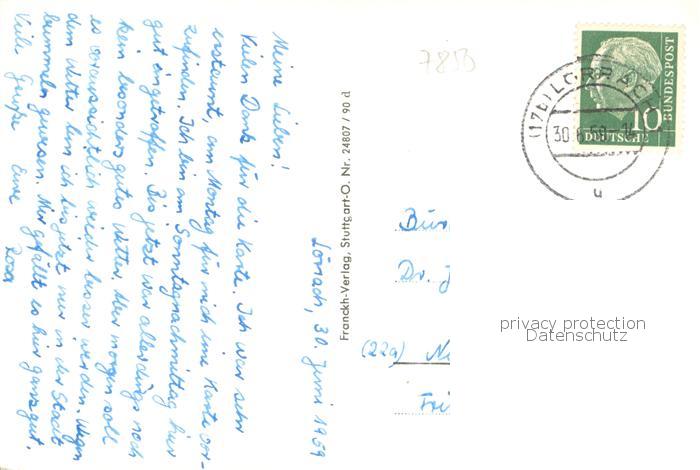 Lörrach, 30. Juni 1959
Meine Lieben!
Vielen Dank für die Karte. Ich war sehr
erstaunt, am Montag für mich eine Karte vor-
zufinden. Ich bin am Sonntagnachmittag hier
gut eingetroffen. Bis jetzt war allerdings noch
kein besonders gutes Wetter. Aber morgen soll
es voraussichtlich wieder besser werden. Wegen
dem Wetter bin ich bis jetzt nur in der Stadt
bummeln gewesen. Mir gefällt es hier ganz gut.
Viele Grüße Eure Rosa
Franckh-Verlag, Stuttgart-O. Nr. 24807 / 90 d
7853
(17b) LÖRRACH
30.6.59
u
10
DEUTSCHE
BUNDESPOST
Bür
Dr. J
(22a) Ne
Fri
privacy protection
Datenschutz